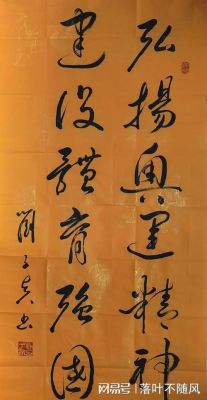 弘揚奥運精神
建设體育强國
劉子善书
网易号 | 落叶不随风